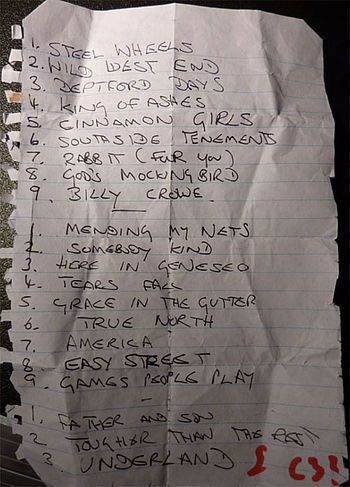 1. STEEL WHEELS
2. WILD WEST END
3. DEPTFORD DAYS
4. KING OF ASHES
5. CINNAMON GIRLS
6. SOUTHSIDE TENEMENTS
7. RABBIT (FOR YOU)
8. GOD'S MOCKINGBIRD
9. BILLY CROWE.
1. MENDING MY NETS
2. SOMEBODY KIND
3. HERE IN GENESEO
4. TEARS FALL
5. GRACE IN THE GUTTER
6. TRUE NORTH
7. AMERICA
8. EASY STREET
9. GAMES PEOPLE PLAY
1. FATHER AND SON
2. TOUGHER THAN THE REST
3. UNDERLAND